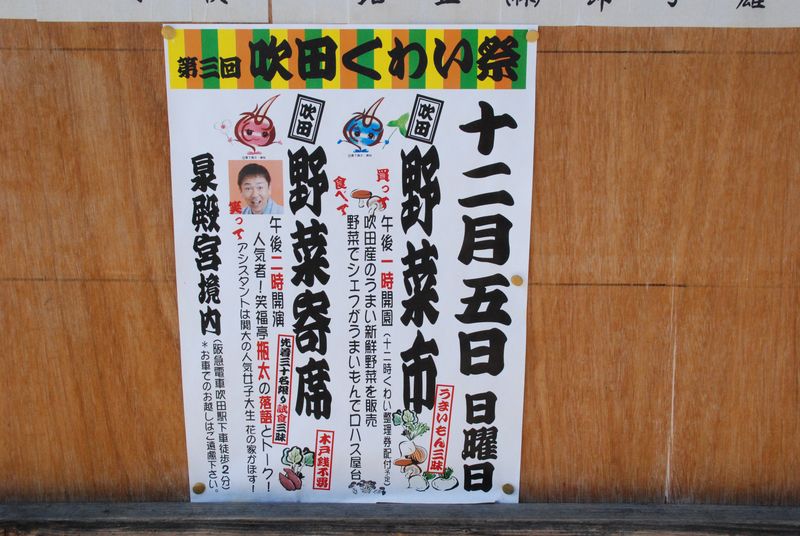 第三回 吹田くわい祭
十二月五日 日曜日
吹田
野菜市
うまいもん三昧
買って
食べて
午後一時開園(十二時くわい整理券配付予定)
吹田産のうまい新鮮野菜を販売
野菜でシェフがうまいもんでロハス屋台
吹田
野菜寄席
木戸銭不要
先着三十名限り試食三昧
笑って
午後二時開演
人気者!笑福亭瓶太の落語とトーク!
アシスタントは関大の人気女子大生 花の家かぼす!
泉殿宮境内
(阪急電車吹田駅下車徒歩2分)
*お車でのお越しはご遠慮下さい。